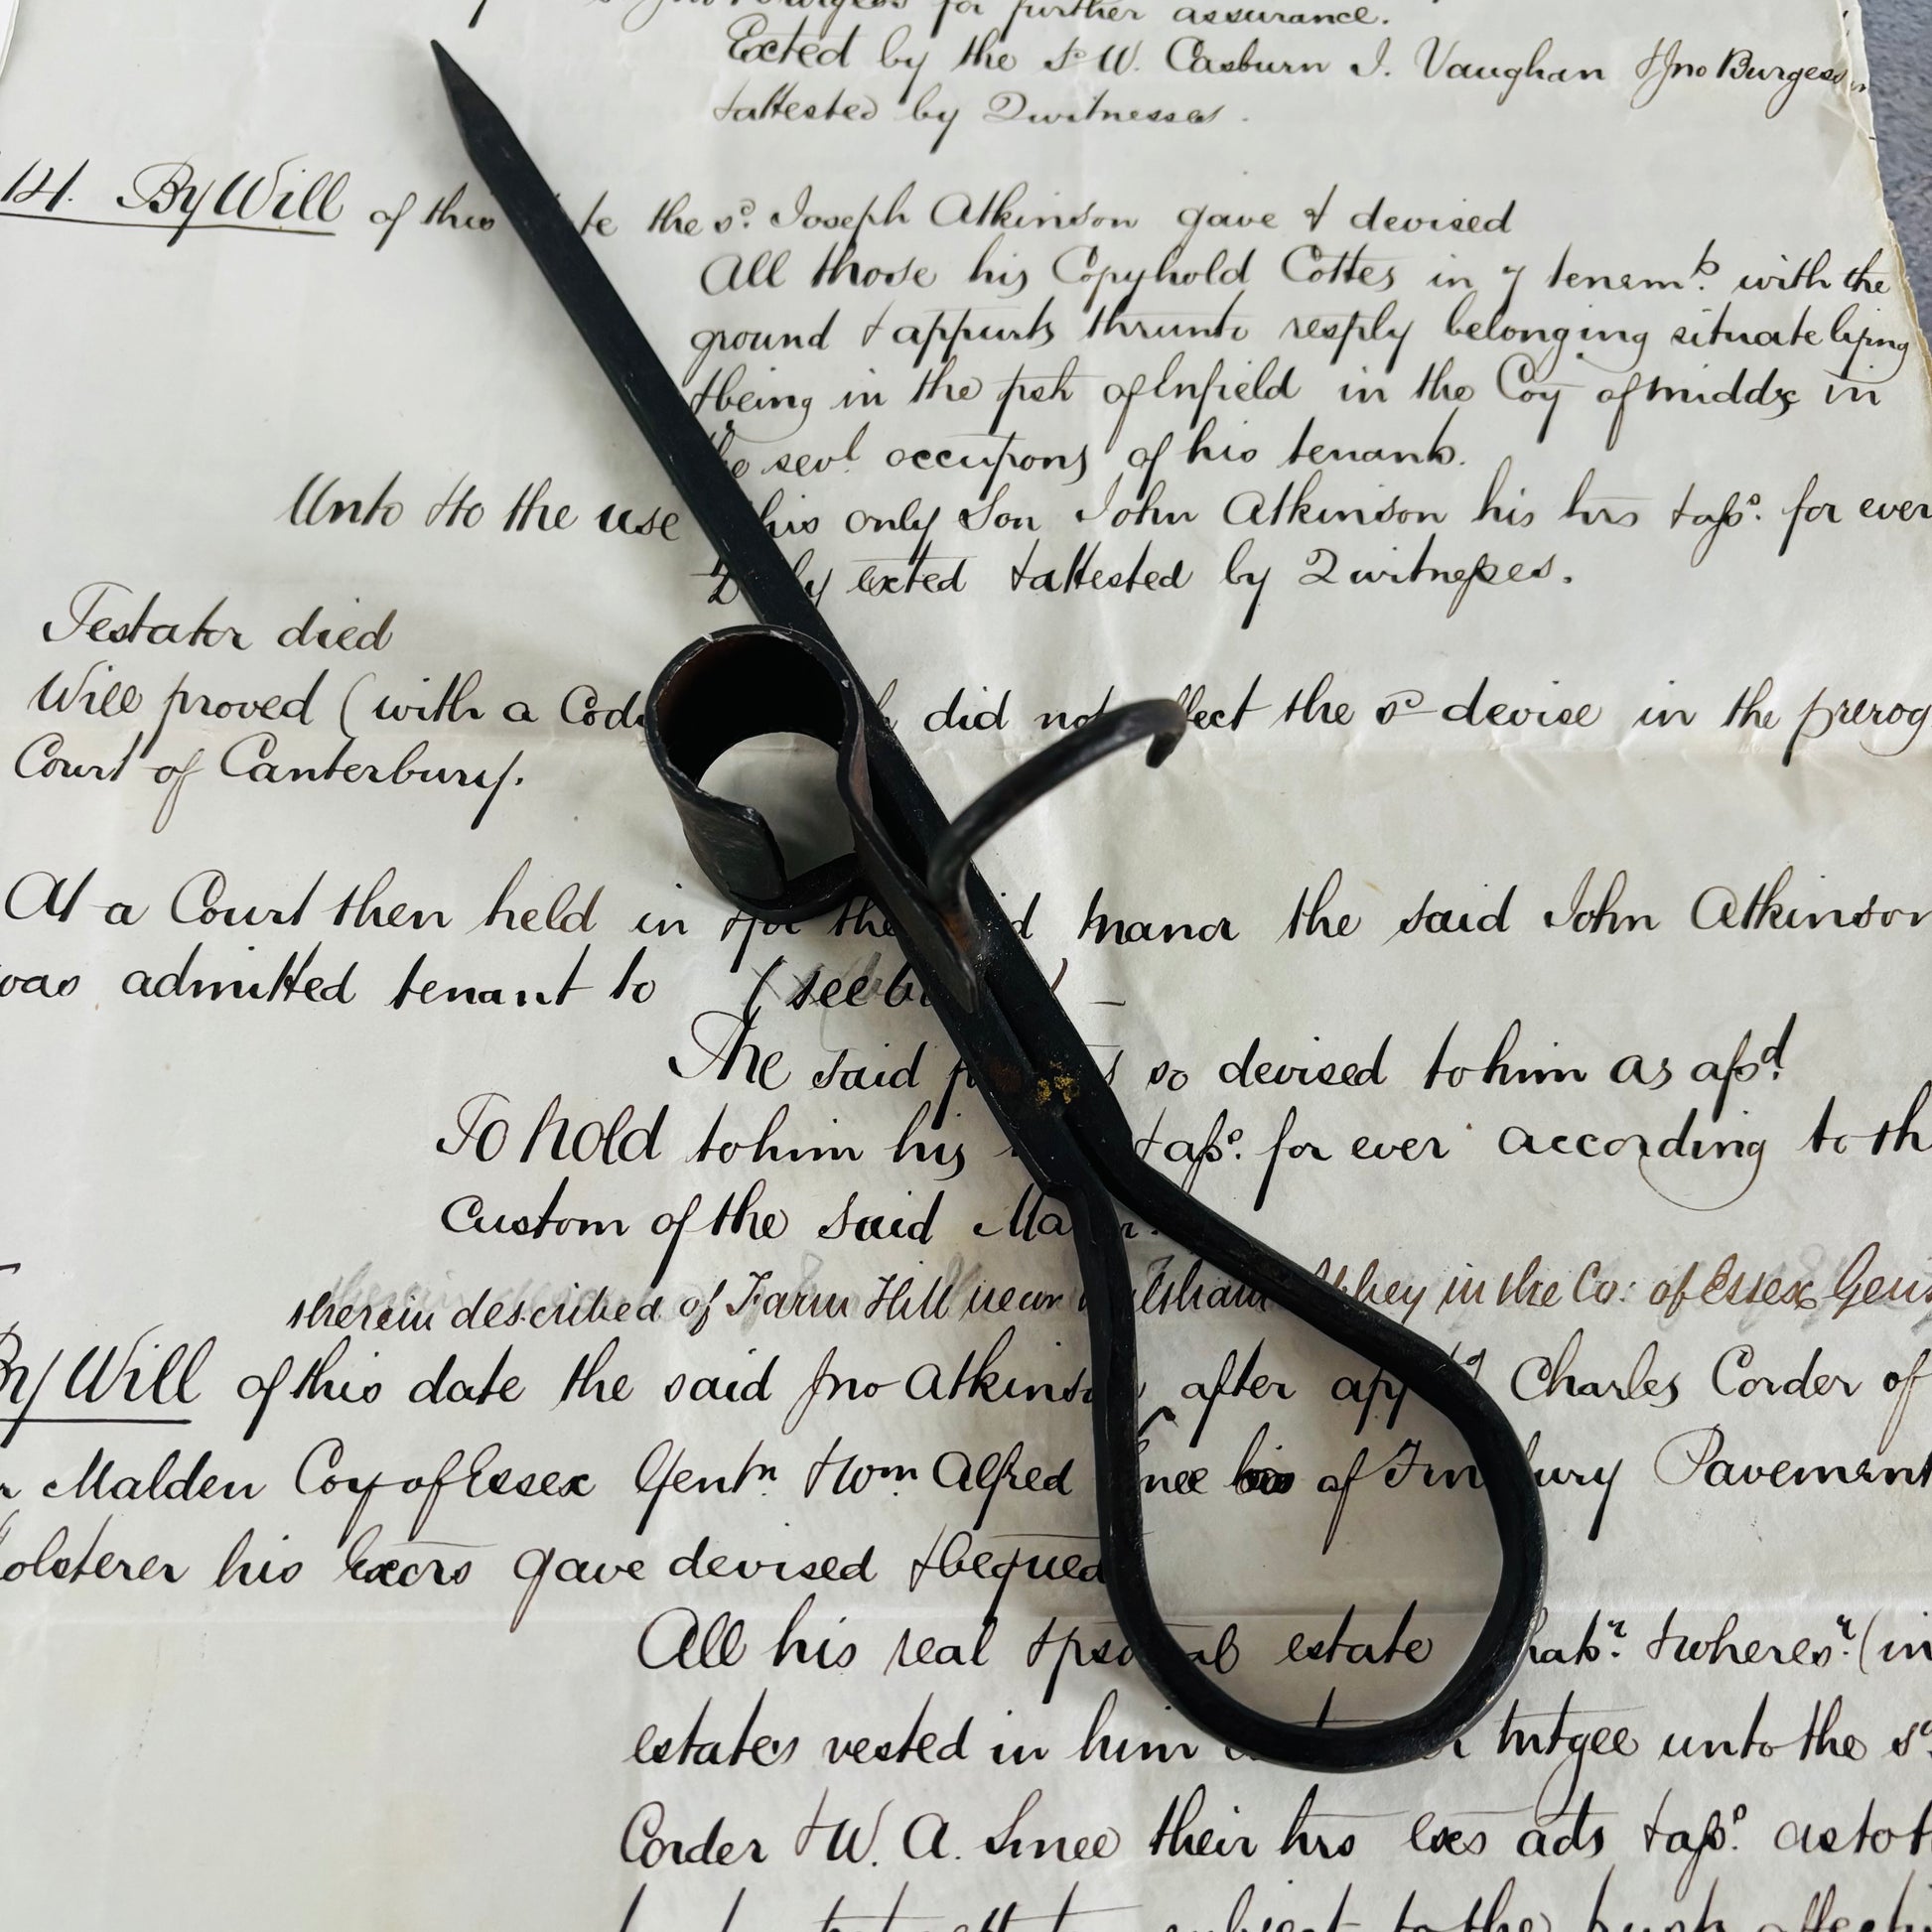 for further assurance.
Exted by the sd W. Casburn I. Vaughan & Jno Burgess
& attested by 2 witnesses.
14. By Will of this te the sd. Joseph Atkinson gave & devised
All those his Copyhold Cottes in 7 tenemts. with the
ground & appurts thrunto resply belonging situate lying
& being in the psh of Enfield in the Coy of Middx in
the sevl occupons of his tenants.
Unto & to the use his only Son John Atkinson his hrs & ass. for ever
exted & attested by 2 witnesses.
Testator died
Will proved (with a did not the sd devise in the prerog
Court of Canterbury.
At a Court then held in & for the manor the said John Atkinson
was admitted tenant to (see
The said so devised to him as afsd.
To hold to him his & ass. for ever according to th
Custom of the said
therein described of Farm Hill near Abbey in the Co: of Essex
By Will of this date the said Jno Atkinson after Charles Corder of
Malden Coy of Essex Gentn. & Wm Alfred of Pavement
his Exors gave devised &
All his real & estate & wheresr. (in
estates vested in him mtgee unto the sd
Corder & W. A. Smee their hrs exs ads & ass. as to
subject to the